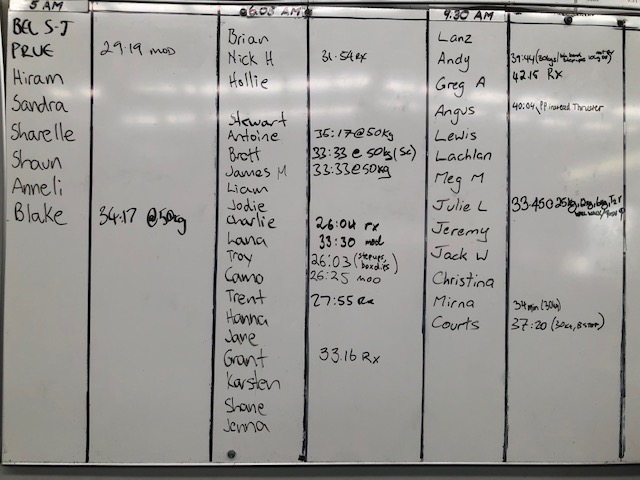 5 AM
BEL S-J
PRUE 29:19 mod
Hiram
Sandra
Sharelle
Shaun
Anneli
Blake 34:17 @50kg
6.03 AM
Brian
Nick H 31:54 Rx
Hollie
Stewart
Antoine 35:17 @ 50kg
Brott 33:33 @ 50kg (Sc)
James M 33:33 @ 50kg
Liam
Jodie
Charlie 26:04 rx
Lana 33:30 mod
Troy 26:03 (stepups, box dips)
Camo 26:25 MOD
Trent 27:55 Rx
Hanna
Jane
Grant 33.16 Rx
Karsten
Shane
Jenna
9:30 AM
Lanz
Andy
Greg A 42.15 Rx
Angus 40:04 PP instead Thruster
Lewis
Lachlan
Meg M
Julie L 33:45
Jeremy
Jack W
Christina
Mirna 34 min (30kg)
Courts 37:20